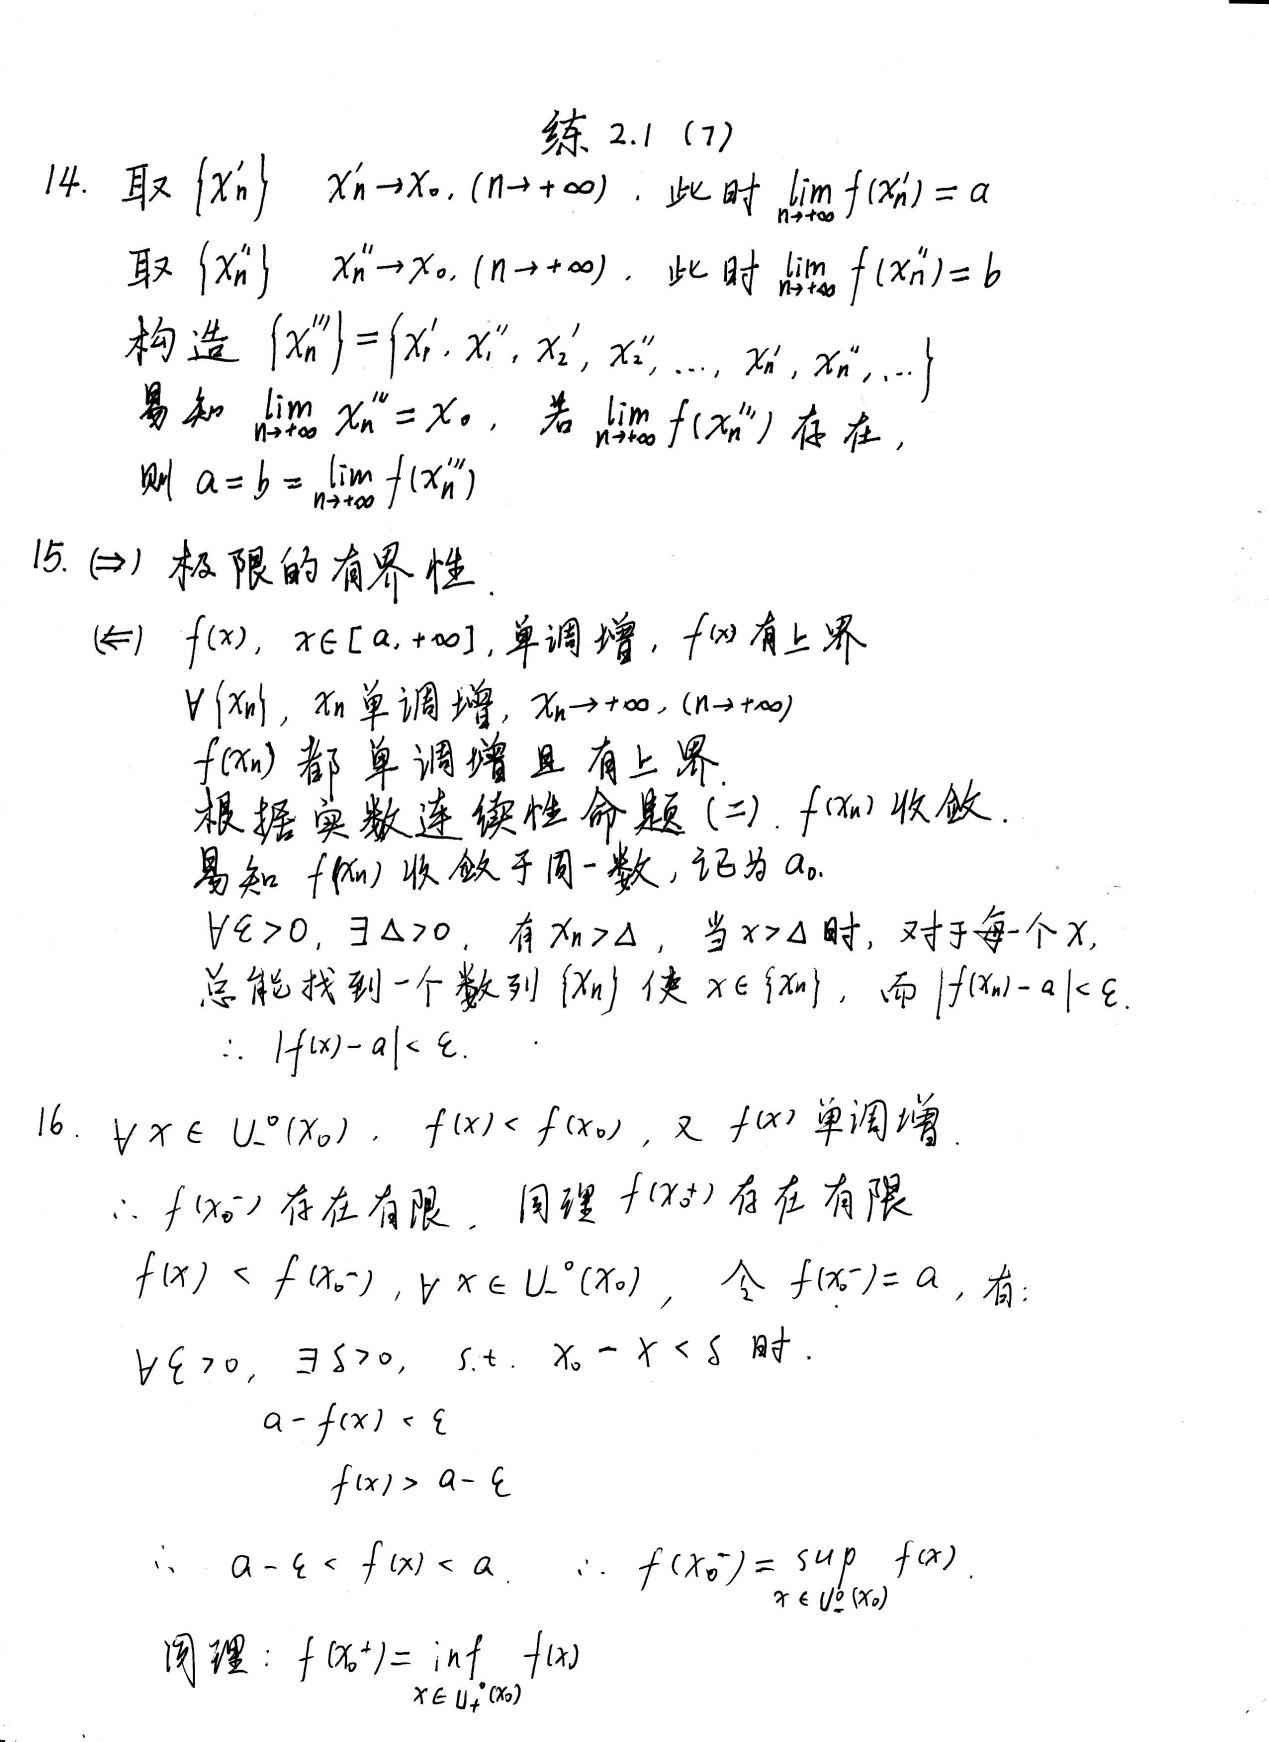 练 2.1 (7)
14. 取 {xₙ′} xₙ′→x₀, (n→+∞). 此时 lim_{n→+∞} f(xₙ′) = a
取 {xₙ″} xₙ″→x₀, (n→+∞). 此时 lim_{n→+∞} f(xₙ″) = b
构造 {xₙ‴} = {x₁′, x₁″, x₂′, x₂″, ..., xₙ′, xₙ″, ...}
易知 lim_{n→+∞} xₙ‴ = x₀, 若 lim_{n→+∞} f(xₙ‴) 存在,
则 a = b = lim_{n→+∞} f(xₙ‴)
15. (⇒) 极限的有界性.
(⇐) f(x), x∈[a, +∞], 单调增, f(x) 有上界
∀{xₙ}, xₙ 单调增, xₙ→+∞, (n→+∞)
f(xₙ) 都单调增且有上界.
根据实数连续性命题(二). f(xₙ) 收敛.
易知 f(xₙ) 收敛于同一数, 记为 a₀.
∀ε>0, ∃Δ>0, 有 xₙ>Δ, 当 x>Δ 时, 对于每一个 x,
总能找到一个数列 {xₙ} 使 x∈{xₙ}, 而 |f(xₙ)-a|<ε.
∴ |f(x)-a|<ε.
16. ∀x∈U₋°(x₀). f(x)<f(x₀), 又 f(x) 单调增.
∴ f(x₀⁻) 存在有限. 同理 f(x₀⁺) 存在有限
f(x) < f(x₀⁻), ∀x∈U₋°(x₀), 令 f(x₀⁻) = a, 有:
∀ε>0, ∃δ>0, s.t. x₀-x<δ 时.
a-f(x)<ε
f(x)>a-ε
∴ a-ε<f(x)<a. ∴ f(x₀⁻) = sup_{x∈U₋°(x₀)} f(x).
同理: f(x₀⁺) = inf_{x∈U₊°(x₀)} f(x)